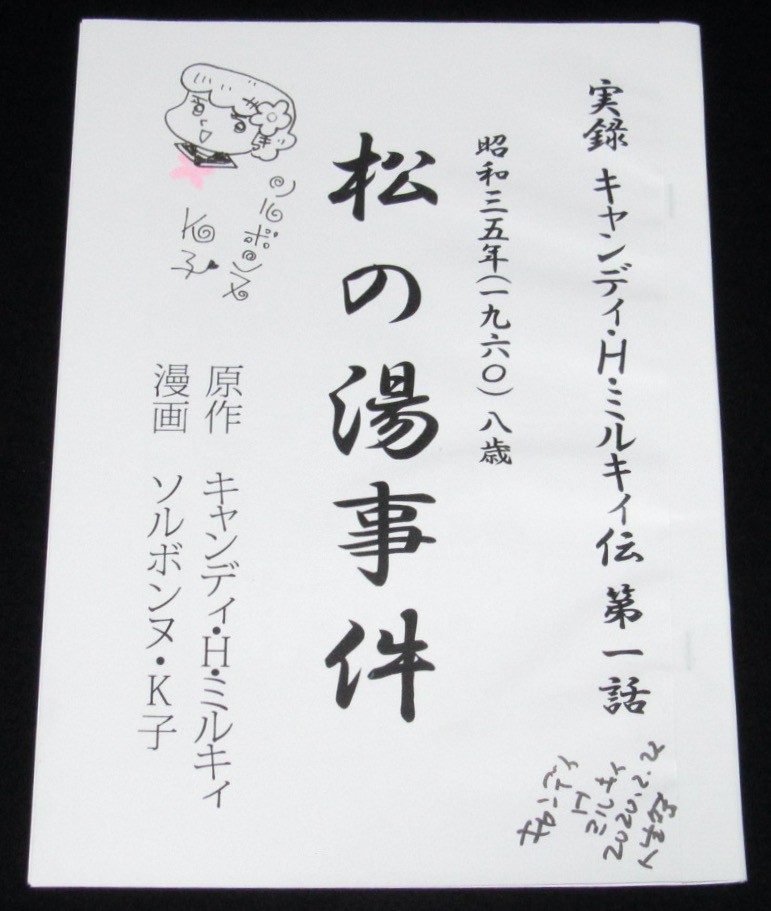 実録 キャンディ・H・ミルキィ伝 第一話
昭和三五年(一九六〇)八歳
松の湯事件
原作 キャンディ・H・ミルキィ
漫画 ソルボンヌ・K子
ソルボンヌ
K子
キャンディ
H
ミルキィ
2020.2.22